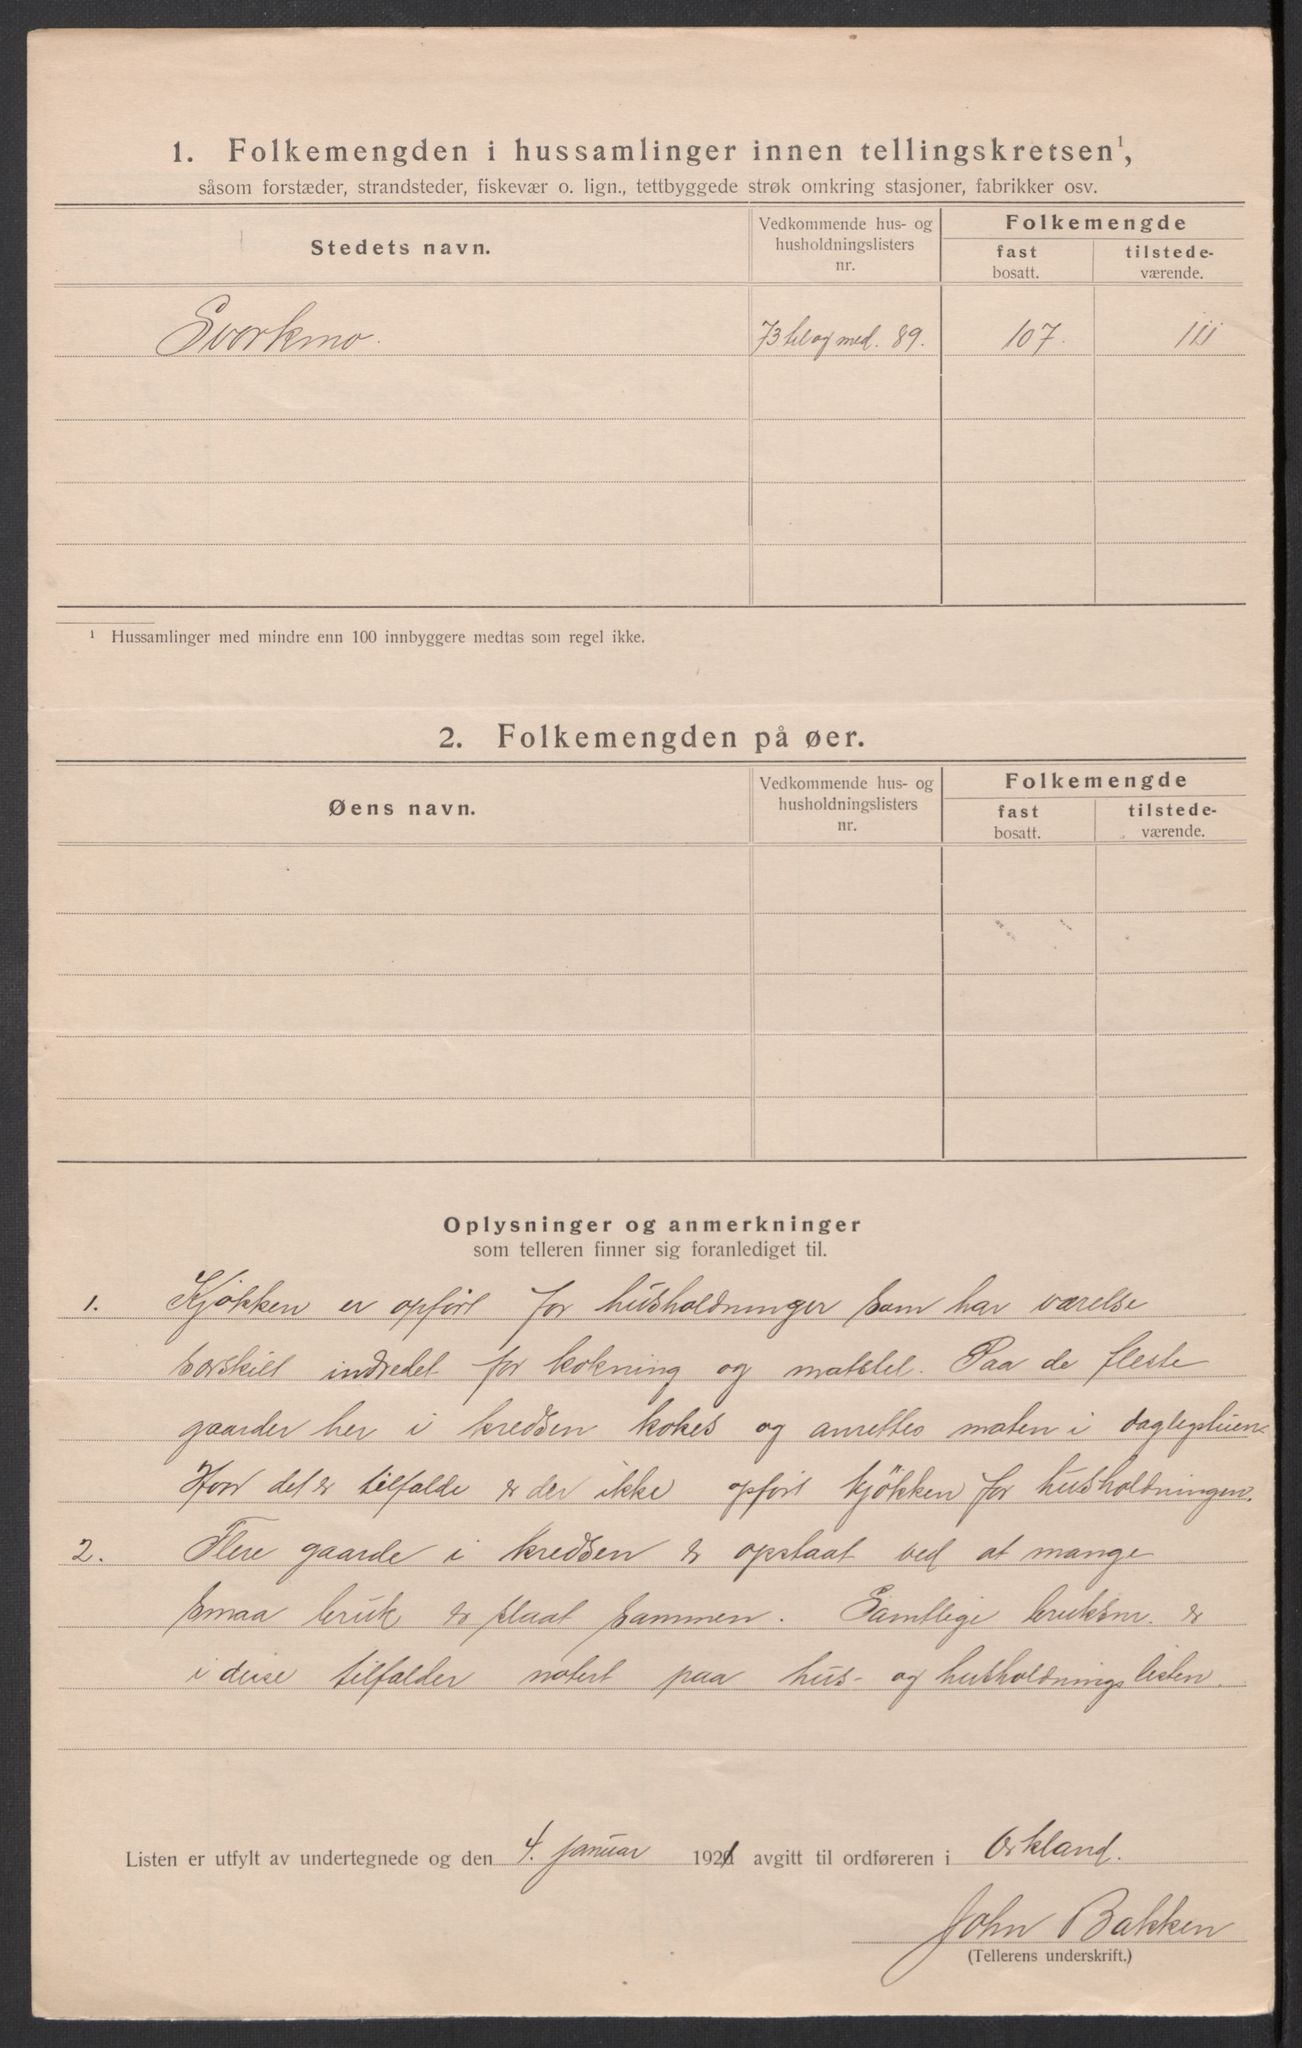 1. Folkemengden i hussamlinger innen tellingskretsen¹,
såsom forstæder, strandsteder, fiskevær o. lign., tettbyggede strøk omkring stasjoner, fabrikker osv.
Stedets navn.
Vedkommende hus- og husholdningslisters nr.
Folkemengde
fast bosatt.
tilstede-værende.
Svorkmo. 73 til og med. 89. 107. 111
¹ Hussamlinger med mindre enn 100 innbyggere medtas som regel ikke.
2. Folkemengden på øer.
Øens navn.
Vedkommende hus- og husholdningslisters nr.
Folkemengde
fast bosatt.
tilstede-værende.
Oplysninger og anmerkninger
som telleren finner sig foranlediget til.
1. Kjøkken er opført for husholdninger som har værelse
særskilt indredet for kokning og matstel. Paa de fleste
gaarder her i kredsen kokes og anrettes maten i daglegstuen.
Hvor det er tilfalde er der ikke opført kjøkken for husholdningen.
2. Flere gaarde i kredsen er opstaat ved at mange
smaa bruk er slaat sammen. Samtlige bruksnr. er
i disse tilfalder notert paa hus- og husholdningslisten.
Listen er utfylt av undertegnede og den 4. januar 1921 avgitt til ordføreren i Orkland.
John Bakken
(Tellerens underskrift.)